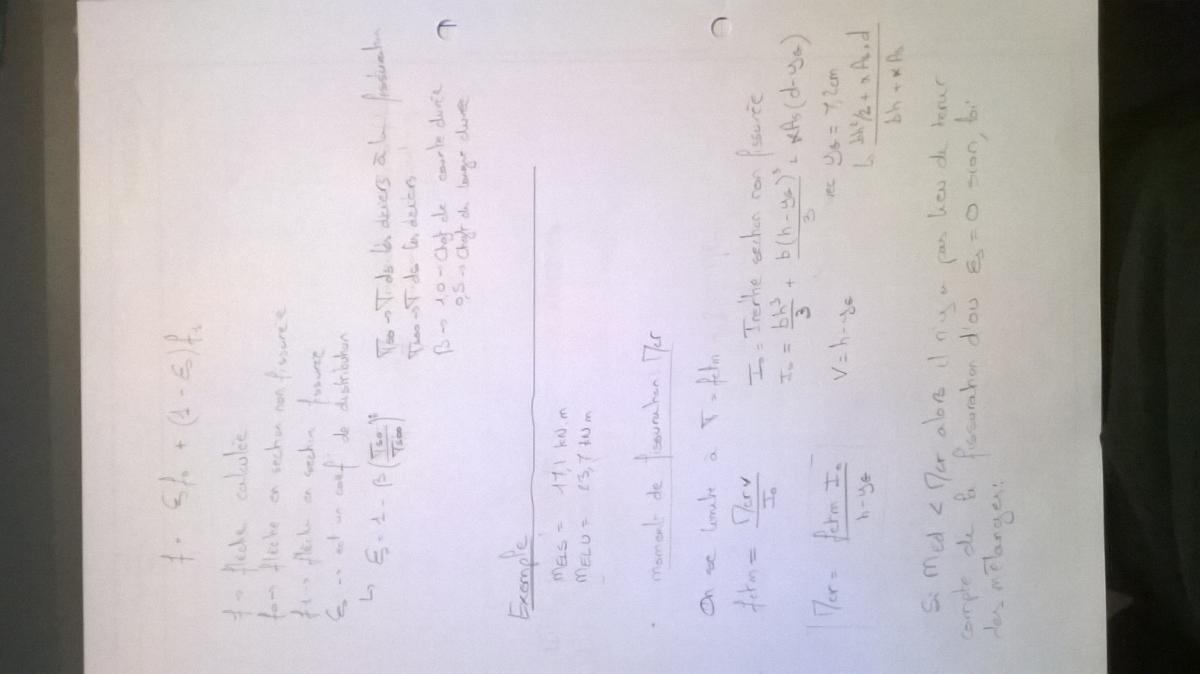 f = ξf₀ + (1 - ξ)f₁
f → flèche calculée
f₀ → flèche en section non fissurée
f₁ → flèche en section fissurée
ξ → est un coef de distribution
↳ ξ = 1 - β (σs₀/σs₀₀)²
→ σ ds les aciers à la fissuration
→ σ ds les aciers
β → 1,0 → Chgt de courte durée
0,5 → Chgt de longue durée
Exemple
MELS = 17,1 kN.m
MELU = 23,7 kN.m
moment de fissuration Mcr
On se limite à σ = fctm
fctm = Mcr v / I₀
I₀ = Inertie section non fissurée
I₀ = bh³/3 + b(h-yG)³/3 + αAs(d-yG)
Mcr = fctm I₀ / h-yG
V = h-yG
avec yG = 7,2cm
↳ bh²/2 + αAs.d / bh + αAs
Si MEd < Mcr alors il n'y a pas lieu de tenir
compte de la fissuration d'où ξ = 0 sion, loi
des mélanges.